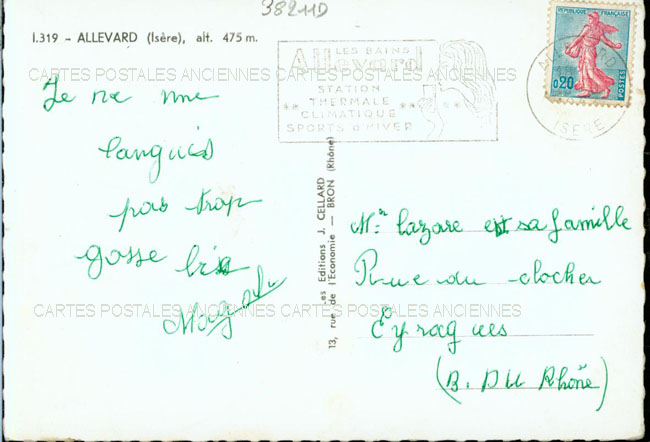 38211D
I.319 - ALLEVARD (Isère), alt. 475 m.
LES BAINS
Allevard
STATION
THERMALE
CLIMATIQUE
SPORTS D'HIVER
REPUBLIQUE FRANÇAISE
0,20
POSTES
ISÈRE
CARTES POSTALES ANCIENNES CARTES POSTALES ANCIENNES
Je ne me
languis
pas trop
gosse bis
Les Editions J. CELLARD
13, rue de l'Economie — BRON (Rhône)
Mr lazare et sa famille
Rue du clocher
Eyragues
(B. DU Rhône)
CARTES POSTALES ANCIENNES CARTES POSTALES ANCIENNES